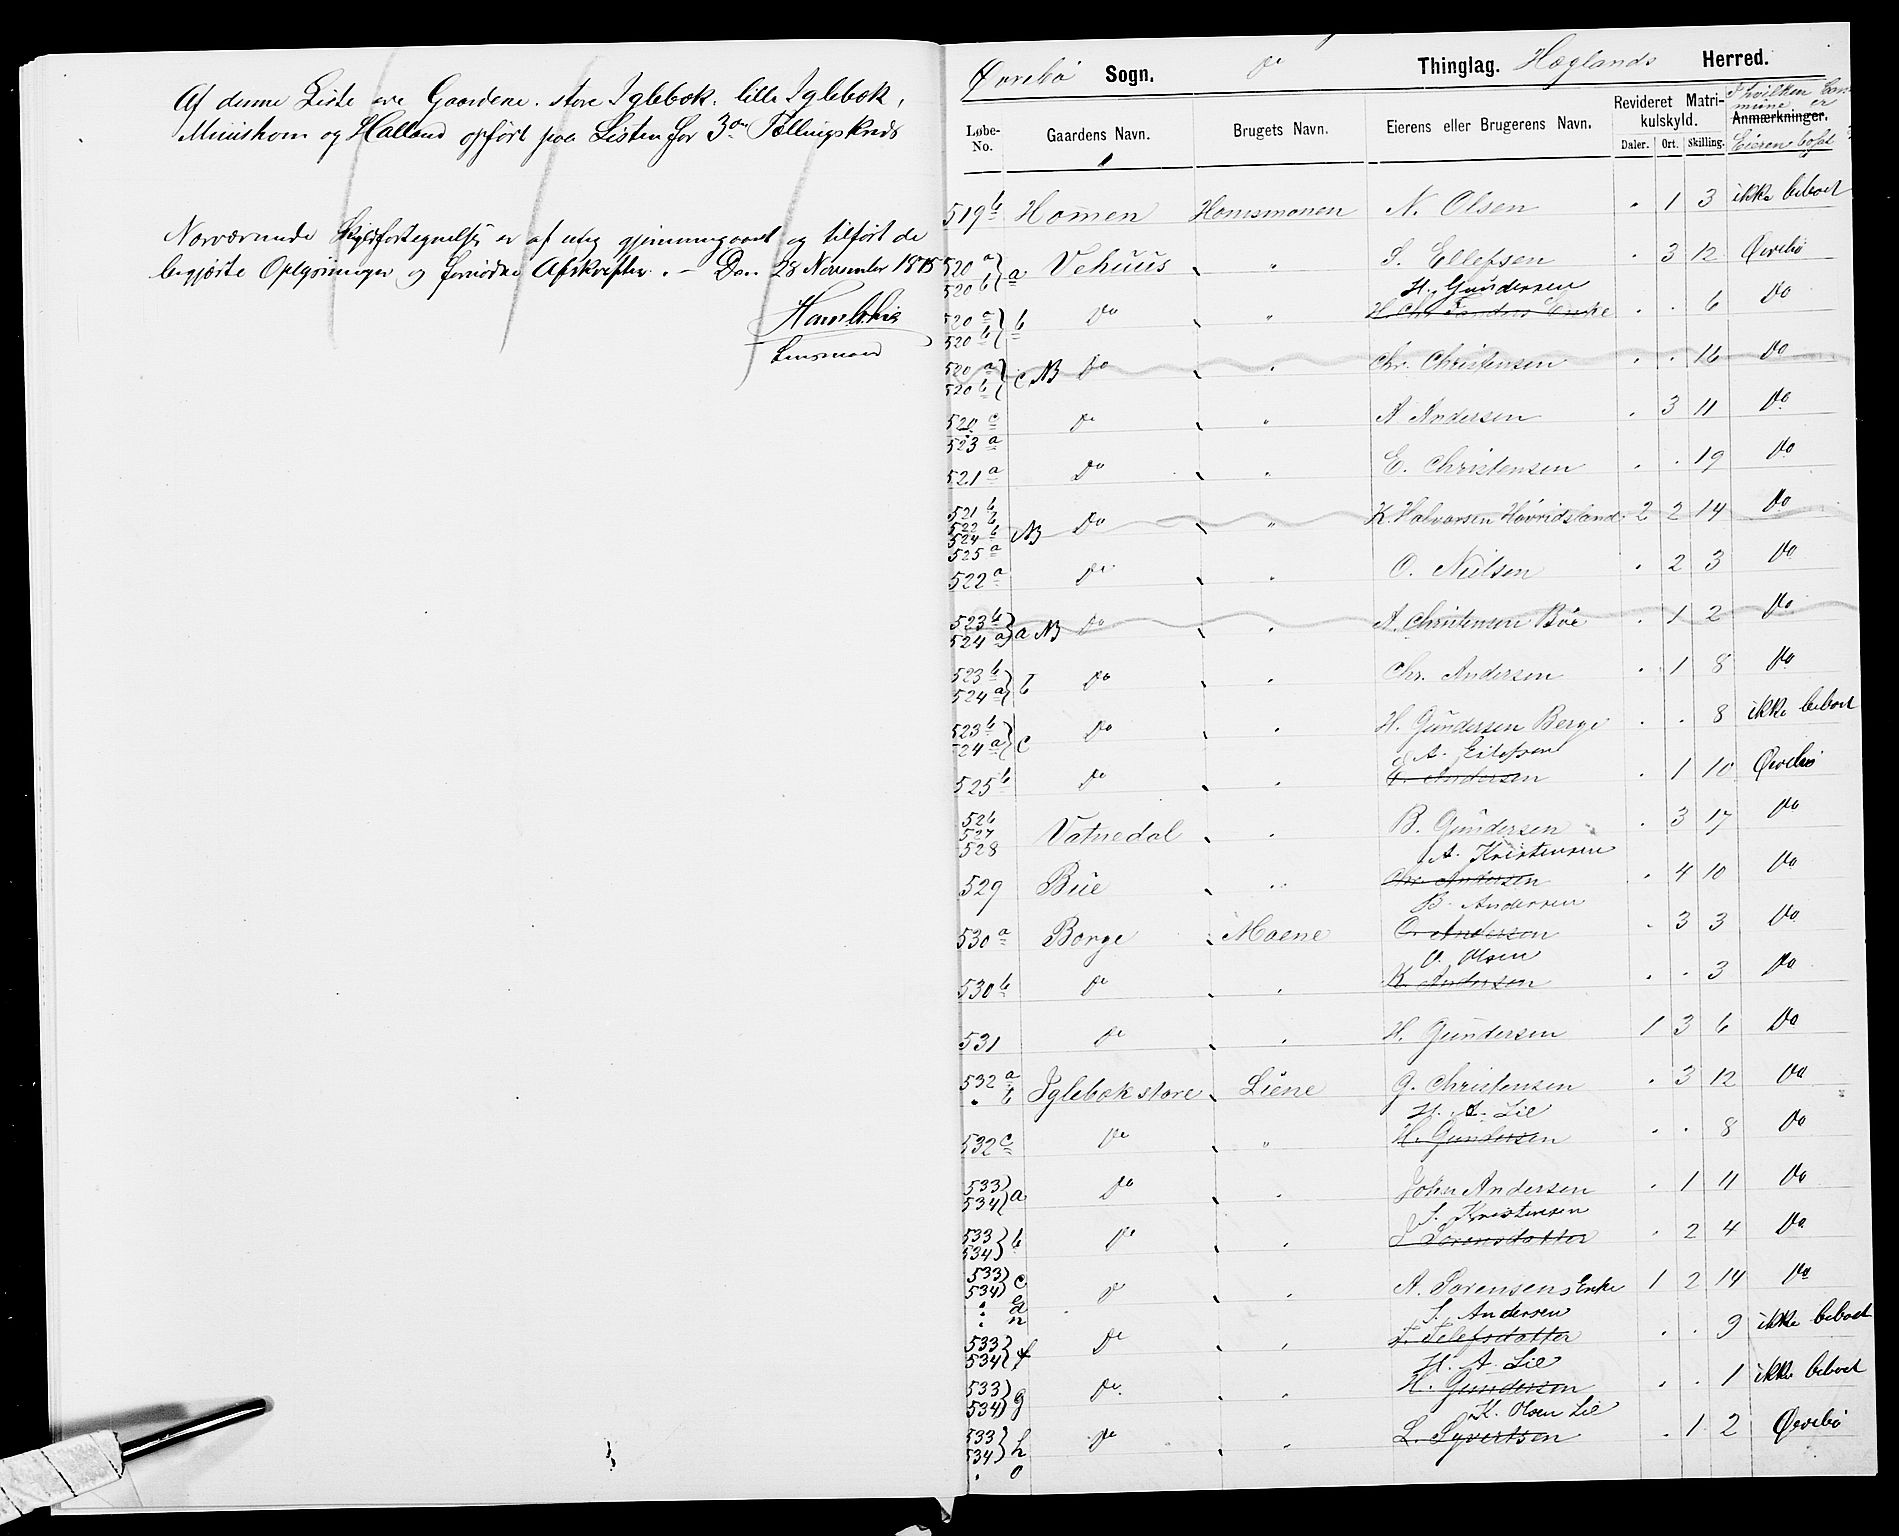 Af denne Liste ere Gaardene store Iglebæk, lille Iglebæk,
og Halland opført paa Listen for 3die Tællingskreds
Nærværende er af mig gjennemgaaet og tilført de
begjærte Oplysninger og Afskrifter. — Den 28 November 1875
Lensmand
Øvrebø Sogn. Do Thinglag. Hæglands Herred.
Løbe-No. Gaardens Navn. Brugets Navn. Eierens eller Brugerens Navn. Revideret Matrikulskyld. Daler. Ort. Skilling. I hvilken Commune er Anmærkninger. Eieren bosat
519 b Homen Homsmonen N. Olsen . 1 3 ikke beboet
520 a 520 b } a Vehuus " S. Ellefsen . 3 12 Øvrebø
H. Gundersen
520 a 520 b } b Do " Enke . . 6 Do
520 a 520 b } c NB Do " Chr. Christensen . . 16 Do
520 c 523 a Do " A Andersen . 3 11 Do
521 a Do " E. Christensen . . 19 Do
521 b 522 b 524 b 525 a NB Do " K. Halvorsen Høvridsland 2 2 14 Do
522 a Do " O. Nielsen . 2 3 Do
523 b 524 a } a NB Do " A. Christensen Bøe . 1 2 Do
523 b 524 a } b Do " Chr. Andersen . 1 8 Do
523 b 524 a } c Do " H. Gundersen Berge . . 8 ikke beboet
A. Eilefsen
525 b Do " Andersen . 1 10 Øvrebø
526 527 528 Vatnedal " B. Gundersen . 3 17 Do
A. Kristensen
529 Büe " Chr. Andersen . 4 10 Do
B. Andersen
530 a Borge Moene O. Andersen . 3 3 Do
O. Olsen
530 b Do " K. Andersen . . 3 Do
531 Do " H. Gundersen 1 3 6 Do
532 a " b Iglebæk store Liene G. Christensen . 3 12 Do
H. A. Lie
532 c Do " H. Gundersen . . 8 Do
533 534 } a Do " John Andersen . 1 11 Do
S. Kristensen
533 534 } b Do " Sørensdatter . 2 4 Do
533 534 } c Do " A. Sørensens Enke 1 2 14 Do
S. Andersen
533 534 } f Do " T. Telefsdatter . . 9 ikke beboet
H. A. Lie
533 534 } g Do " H. Gundersen . . 1 ikke beboet
K. Olsen Lie
533 534 } h " o Do " L. Syvertsen . 1 2 Øvrebø